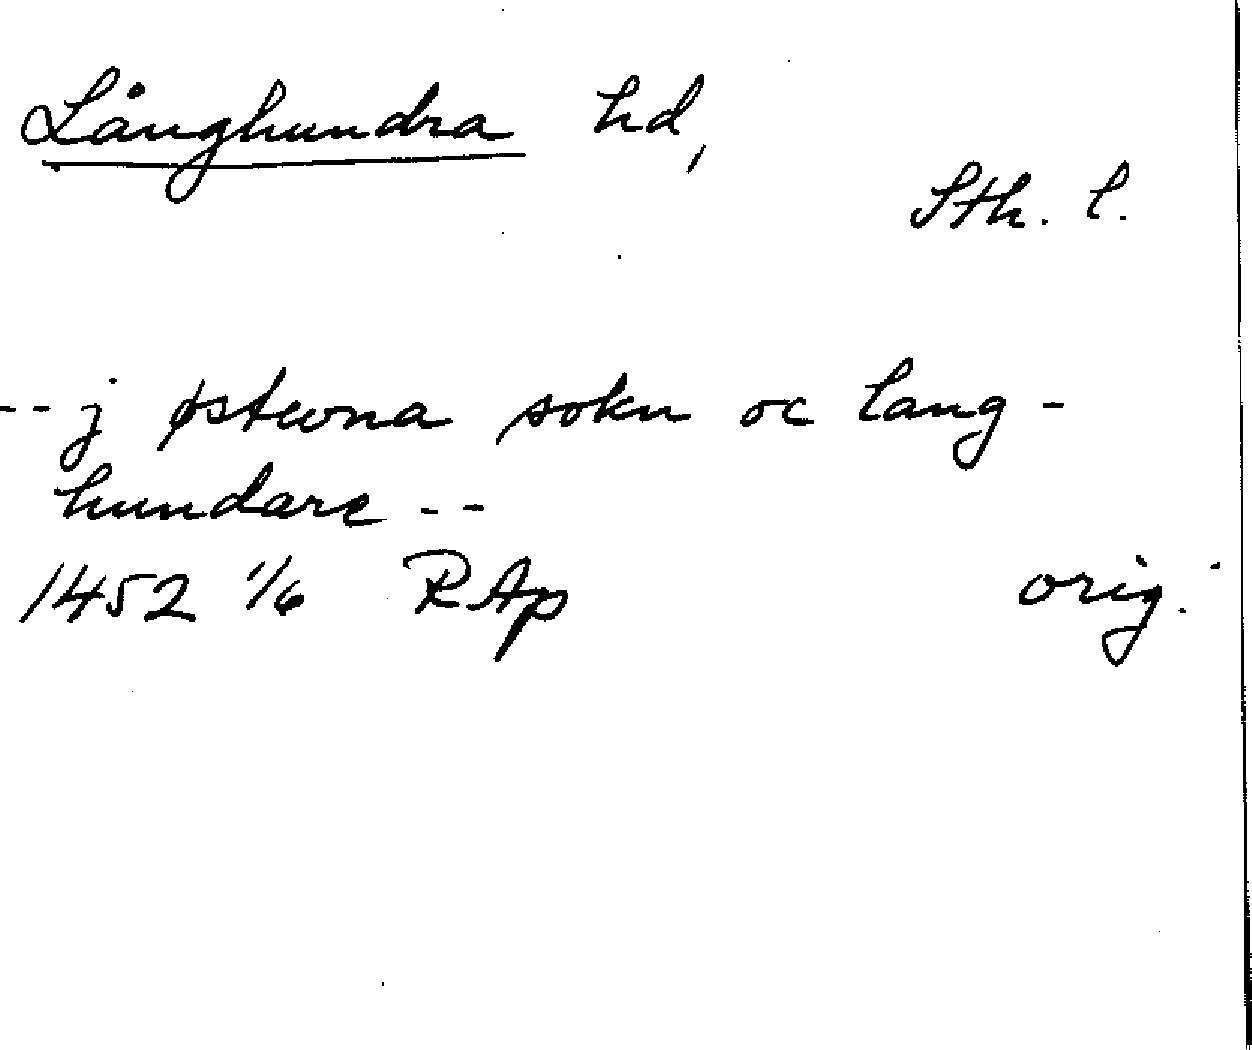 Långhundra hd,
Sth. l.
-- j østuna sokn oc lang-
hundare --
1452 1/6 RAp orig.